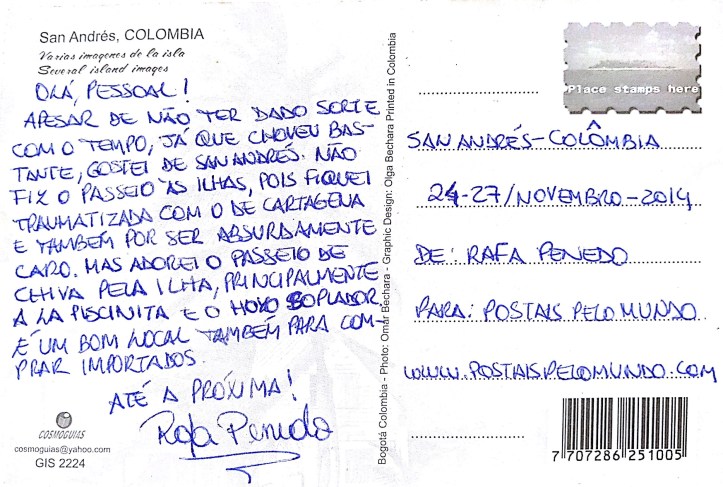 San Andrés, COLOMBIA
Varias imagenes de la isla
Several island images
OLÁ, PESSOAL!
APESAR DE NÃO TER DADO SORTE
COM O TEMPO, JÁ QUE CHOVEU BAS-
TANTE, GOSTEI DE SAN ANDRÉS. NÃO
FIZ O PASSEIO ÀS ILHAS, POIS FIQUEI
TRAUMATIZADA COM O DE CARTAGENA
E TAMBÉM POR SER ABSURDAMENTE
CARO. MAS ADOREI O PASSEIO DE
CHIVA PELA ILHA, PRINCIPALMENTE
A LA PISCINITA E O HOYO SOPLADOR
É UM BOM LOCAL TAMBÉM PARA COM-
PRAR IMPORTADOS.
ATÉ A PRÓXIMA!
Rafa Penedo
COSMOGUIAS
cosmoguias@yahoo.com
GIS 2224
Bogotá Colombia - Photo: Omar Bechara - Graphic Design: Olga Bechara Printed in Colombia
Place stamps here
SAN ANDRÉS - COLÔMBIA
24-27/NOVEMBRO-2014
DE: RAFA PENEDO
PARA: POSTAIS PELO MUNDO
WWW.POSTAISPELOMUNDO.COM
7 707286 251005